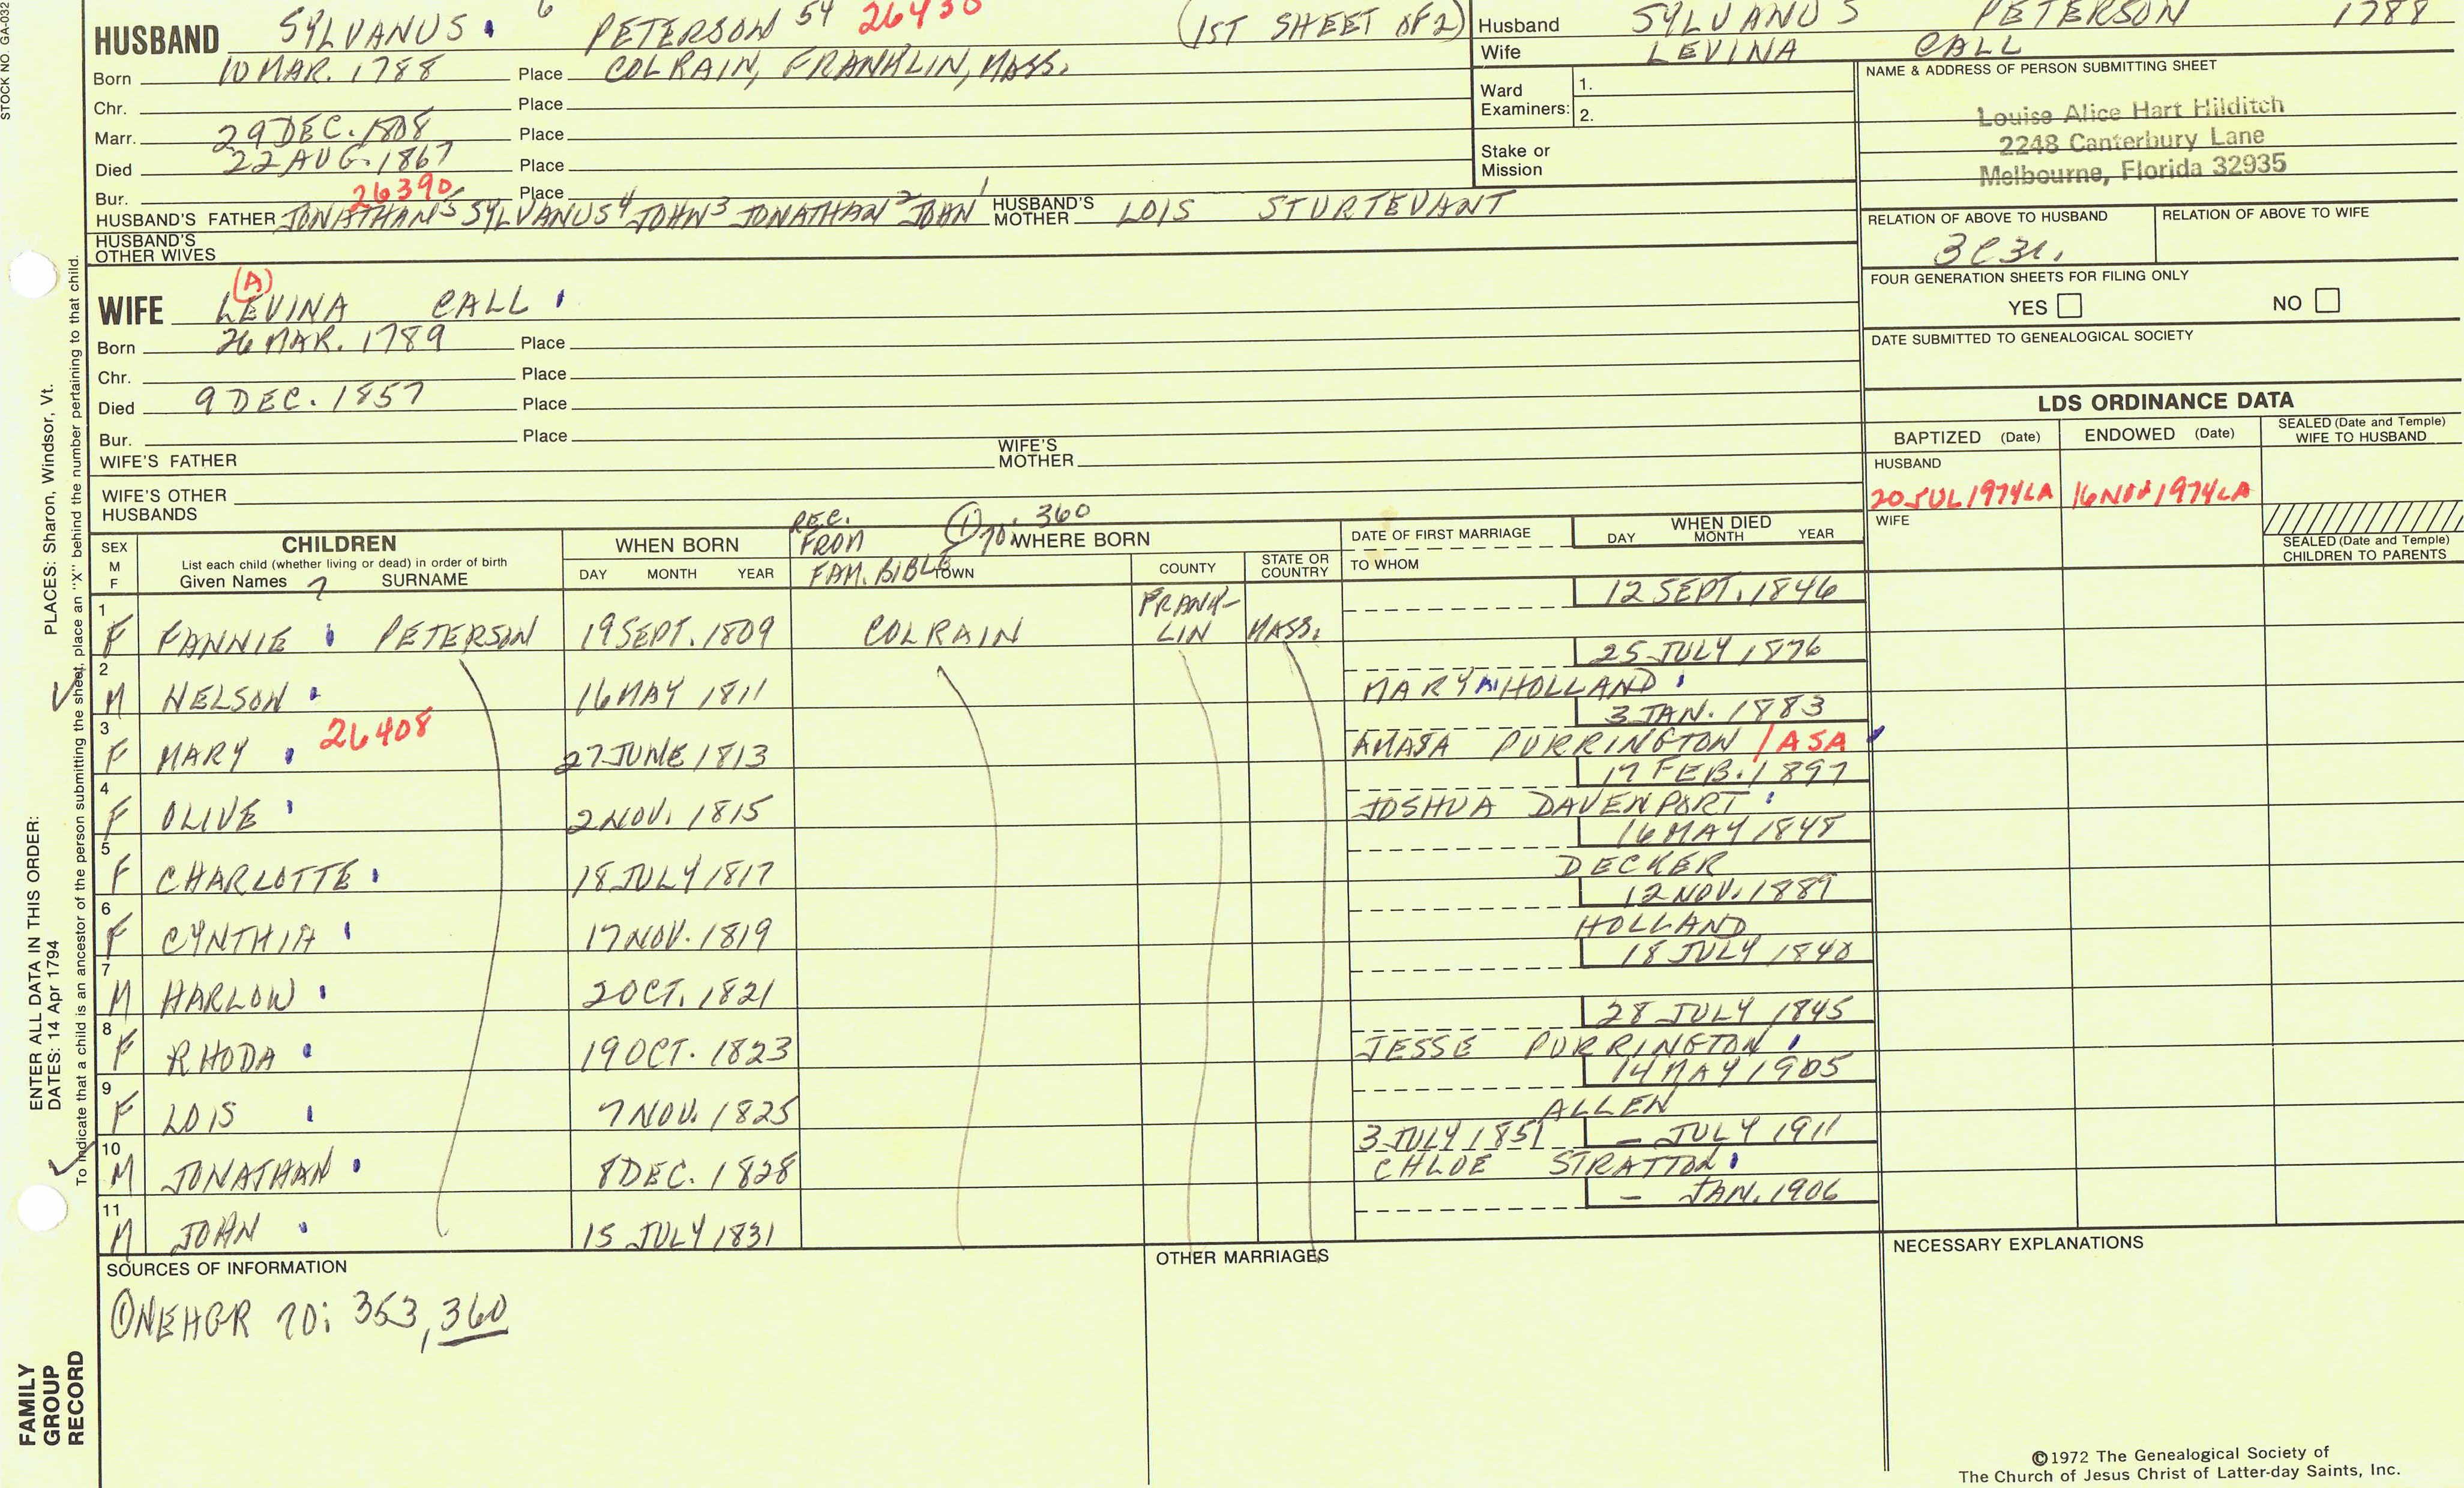 STOCK NO. GA-032
HUSBAND SYLVANUS 6 PETERSON 54 (1ST SHEET OF 2)
Born 10 MAR. 1788 Place COLRAIN, FRANKLIN, MASS.
Chr. Place
Marr. 29 DEC. 1808 Place
Died 22 AUG. 1867 Place
Bur. 26390 Place
HUSBAND'S FATHER JONATHAN5 SYLVANUS4 JOHN3 JONATHAN2 JOHN1 HUSBAND'S MOTHER LOIS STURTEVANT
HUSBAND'S OTHER WIVES
Husband SYLVANUS PETERSON 1788
Wife LEVINA CALL
Ward Examiners: 1.
2.
Stake or Mission
NAME & ADDRESS OF PERSON SUBMITTING SHEET
Louise Alice Hart Hilditch
2248 Canterbury Lane
Melbourne, Florida 32935
RELATION OF ABOVE TO HUSBAND RELATION OF ABOVE TO WIFE
3C3R.
FOUR GENERATION SHEETS FOR FILING ONLY
YES NO
DATE SUBMITTED TO GENEALOGICAL SOCIETY
(A)
WIFE LEVINA CALL
Born 26 MAR. 1789 Place
Chr. Place
Died 9 DEC. 1857 Place
Bur. Place
WIFE'S FATHER WIFE'S MOTHER
WIFE'S OTHER HUSBANDS
LDS ORDINANCE DATA
BAPTIZED (Date) ENDOWED (Date) SEALED (Date and Temple) WIFE TO HUSBAND
HUSBAND
20 JUL 1974 LA 16 NOV 1974 LA
WIFE
SEALED (Date and Temple) CHILDREN TO PARENTS
REC. FROM FAM. BIBLE ① 70: 360
SEX M F CHILDREN WHEN BORN WHERE BORN DATE OF FIRST MARRIAGE WHEN DIED
List each child (whether living or dead) in order of birth
Given Names SURNAME DAY MONTH YEAR TOWN COUNTY STATE OR COUNTRY TO WHOM DAY MONTH YEAR
1 F FANNIE PETERSON 19 SEPT. 1809 COLRAIN FRANK-LIN MASS. 12 SEPT. 1846
2 M NELSON 16 MAY 1811 MARY HOLLAND 25 JULY 1876
3 F MARY 26408 27 JUNE 1813 AMASA PURRINGTON / ASA 3 JAN. 1883
4 F OLIVE 2 NOV. 1815 JOSHUA DAVENPORT 17 FEB. 1897
5 F CHARLOTTE 18 JULY 1817 DECKER 16 MAY 1848
6 F CYNTHIA 17 NOV. 1819 HOLLAND 12 NOV. 1889
7 M HARLOW 2 OCT. 1821 18 JULY 1840
8 F RHODA 19 OCT. 1823 JESSE PURRINGTON 28 JULY 1845
9 F LOIS 7 NOV. 1825 ALLEN 14 MAY 1905
10 M JONATHAN 8 DEC. 1828 3 JULY 1851 CHLOE STRATTON - JULY 1911
11 M JOHN 15 JULY 1831 - JAN. 1906
SOURCES OF INFORMATION
① NEHGR 70: 353, 360
OTHER MARRIAGES
NECESSARY EXPLANATIONS
ENTER ALL DATA IN THIS ORDER:
DATES: 14 Apr 1794 PLACES: Sharon, Windsor, Vt.
To indicate that a child is an ancestor of the person submitting the sheet, place an "X" behind the number pertaining to that child.
FAMILY
GROUP
RECORD
©1972 The Genealogical Society of
The Church of Jesus Christ of Latter-day Saints, Inc.